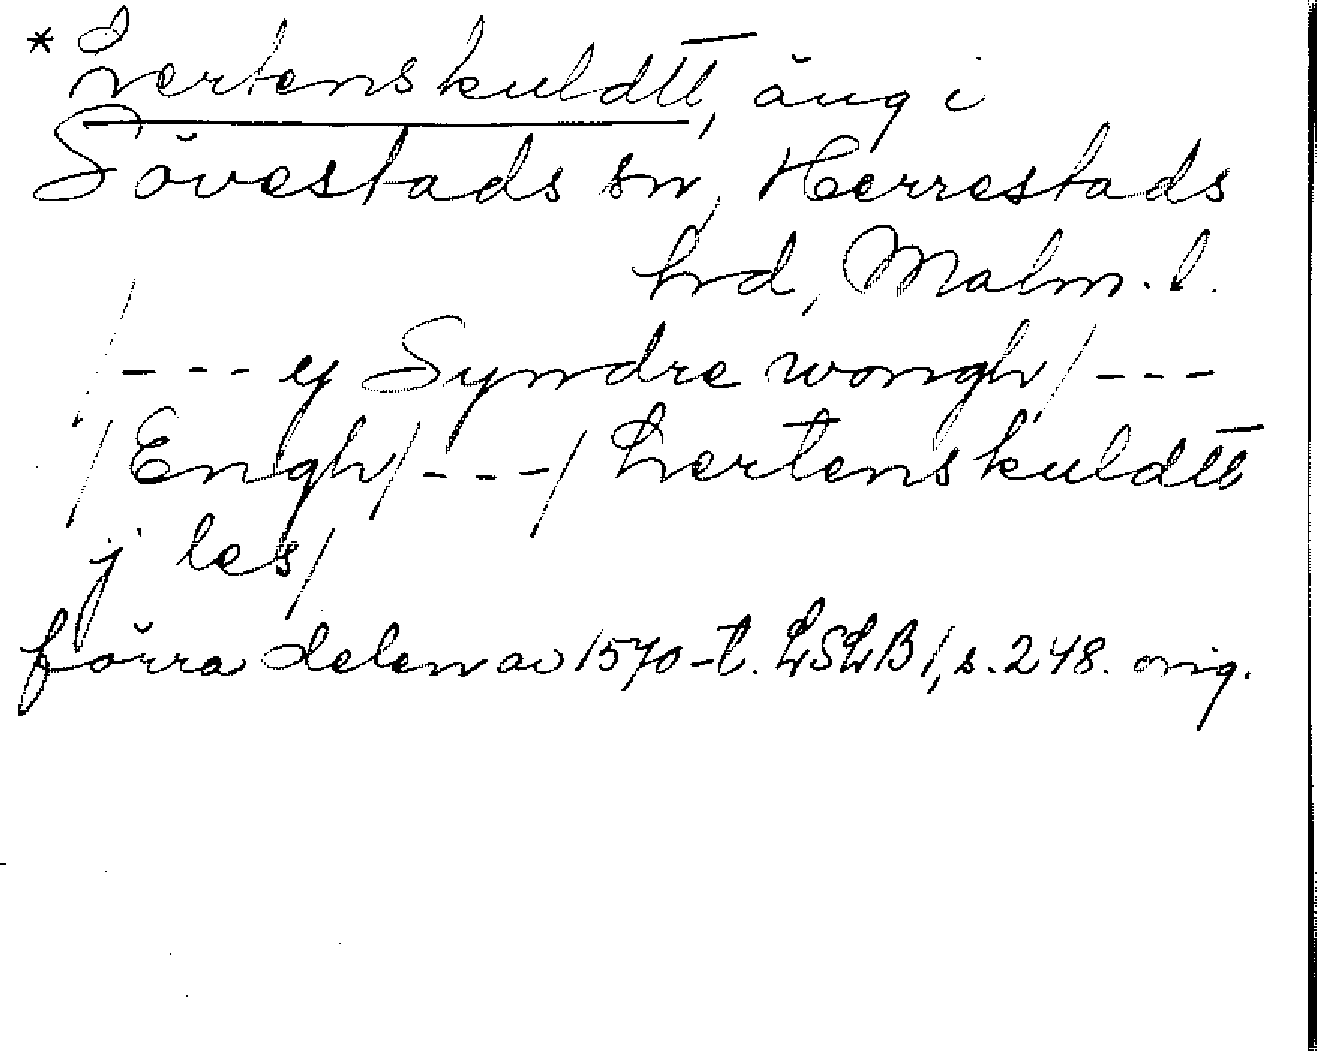 * Lertenskuldtt, äng i
Sövestads sn, Herrestads
hrd, Malm. l.
/--- ey Syndre wongh/---
/Engh/---/ Lertenskuldtt
j les/
förra delen av 1570-t. LSLB 1, s. 248. orig.